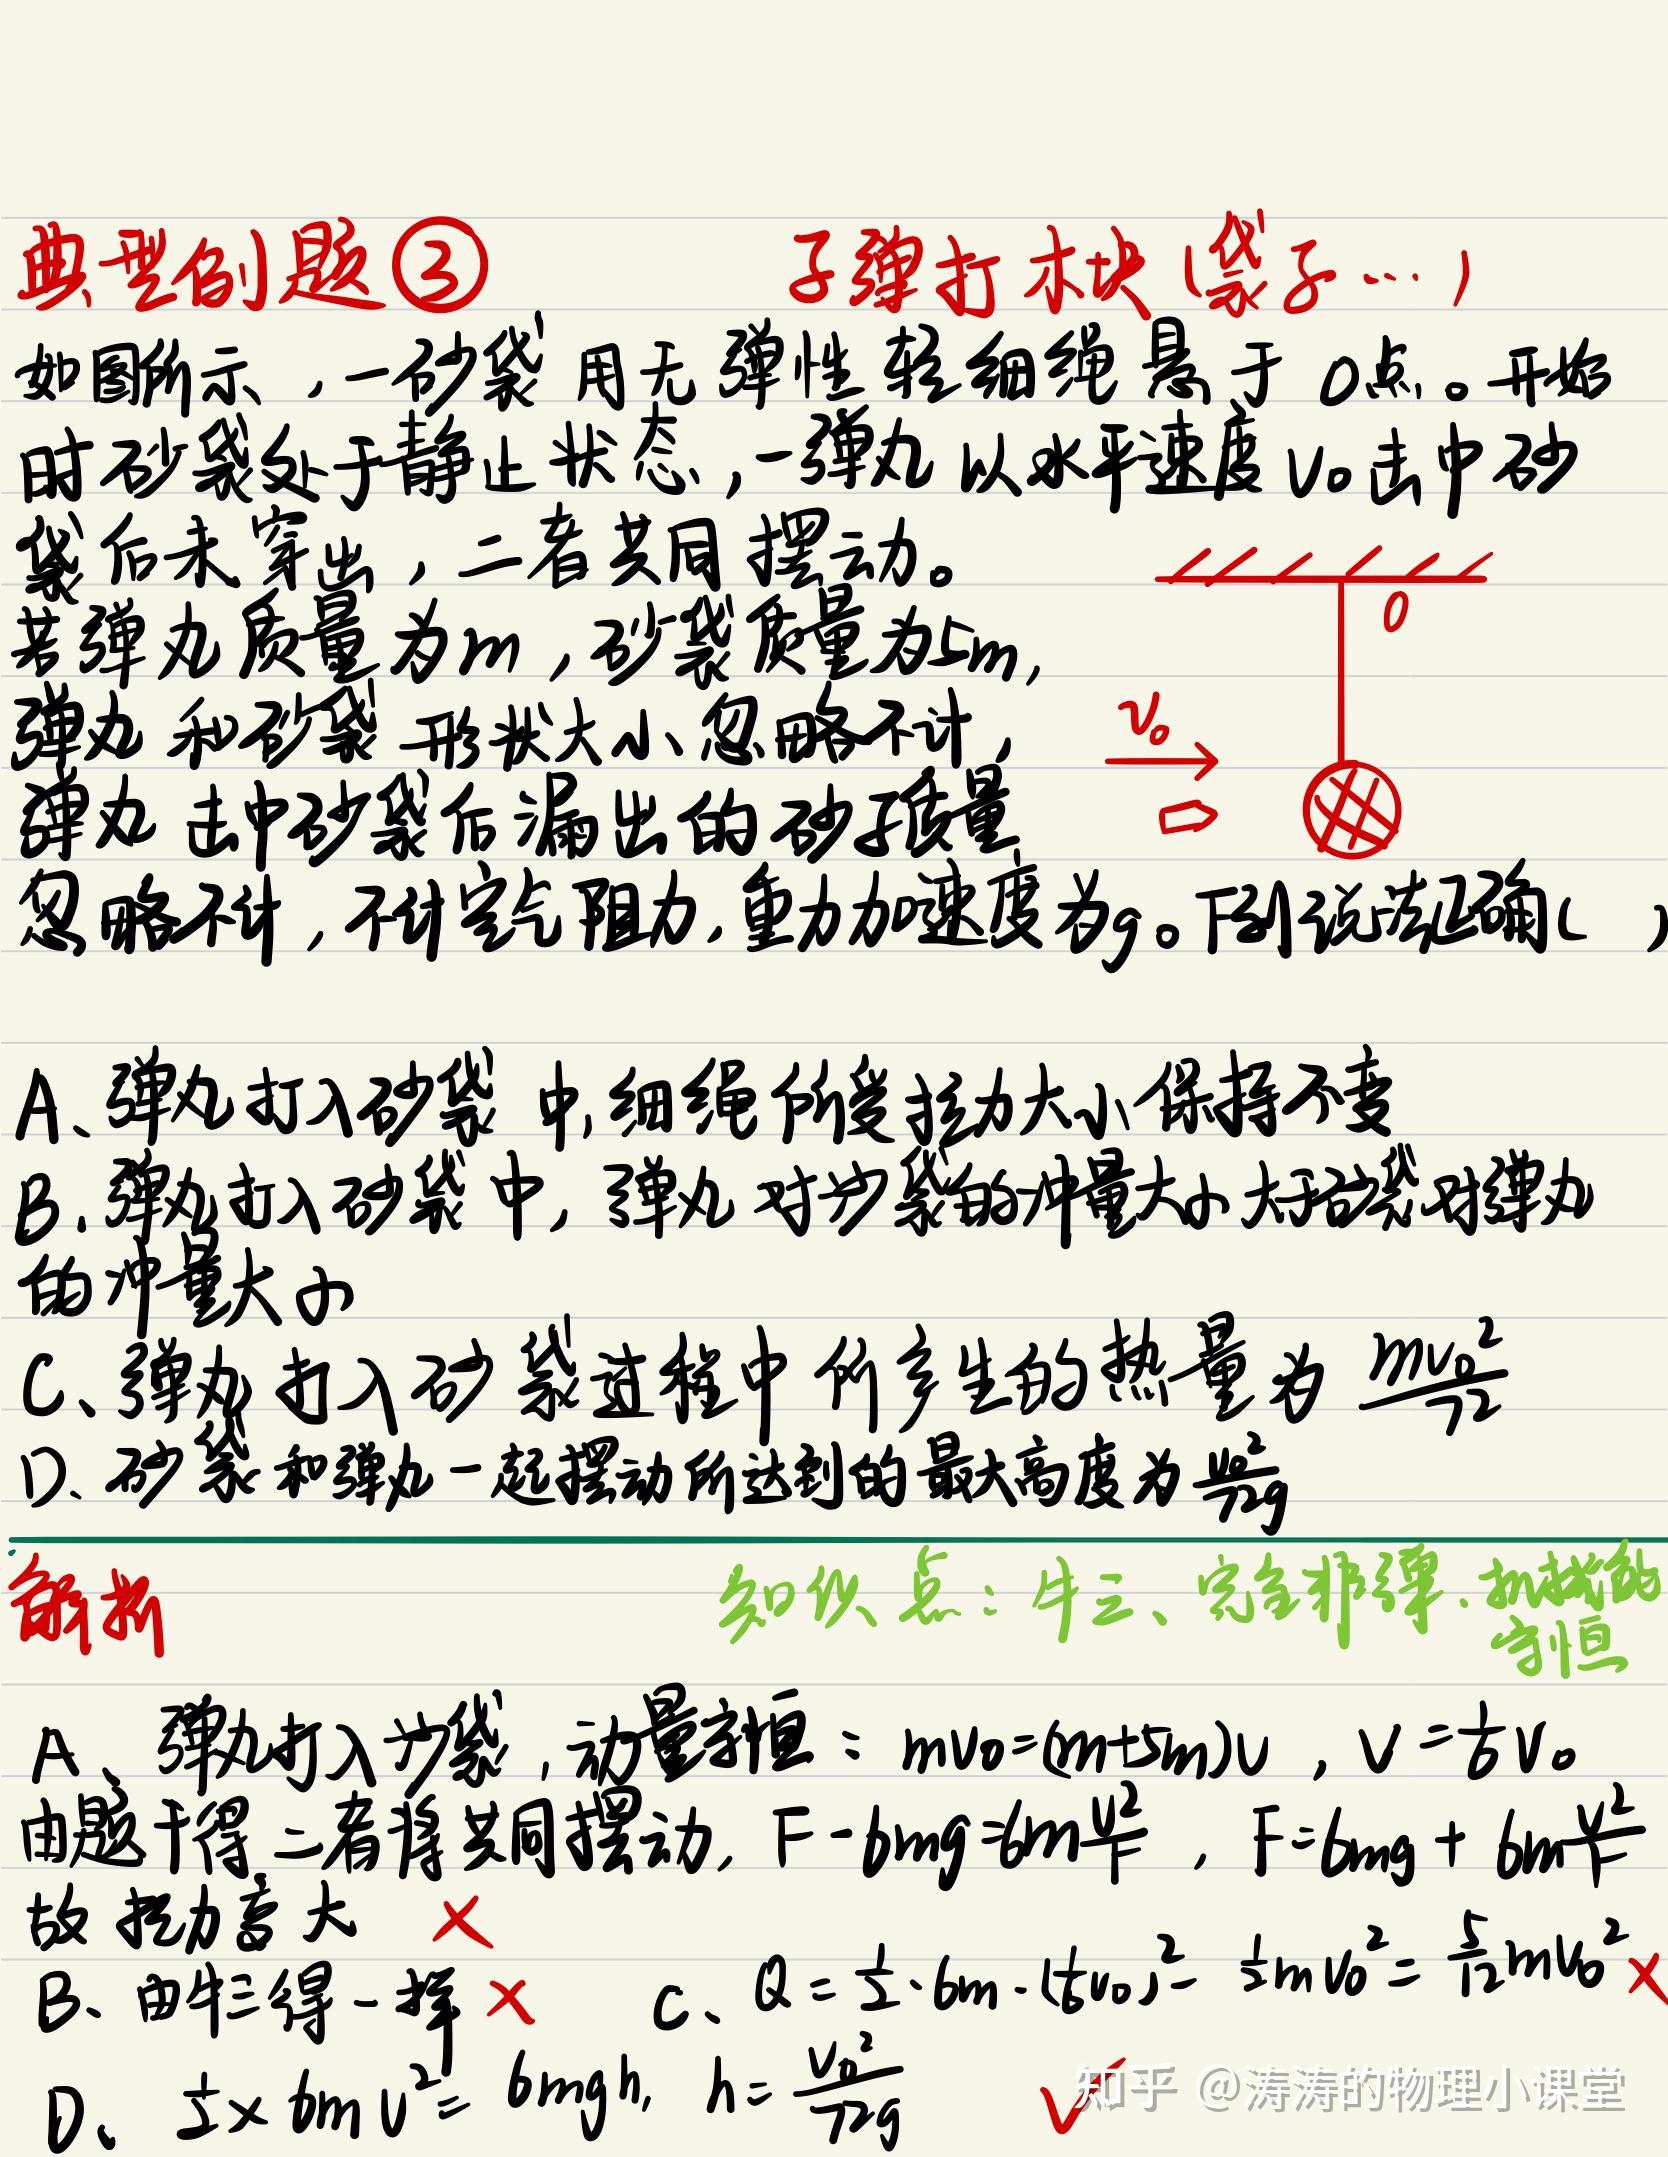 典型例题③ 子弹打木块(袋子…)
如图所示，一砂袋用无弹性轻细绳悬于O点。开始
时砂袋处于静止状态，一弹丸以水平速度v₀击中砂
袋后未穿出，二者共同摆动。
若弹丸质量为m，砂袋质量为5m，
弹丸和砂袋形状大小忽略不计，
弹丸击中砂袋后漏出的砂子质量
忽略不计，不计空气阻力，重力加速度为g。下列说法正确( )
O
v₀
A、弹丸打入砂袋中，细绳所受拉力大小保持不变
B、弹丸打入砂袋中，弹丸对沙袋的冲量大小大于砂袋对弹丸
的冲量大小
C、弹丸打入砂袋过程中所产生的热量为 mv₀²/72
D、砂袋和弹丸一起摆动所达到的最大高度为 v₀²/72g
解析
知识点：牛三、完全非弹、机械能
守恒
A、弹丸打入沙袋，动量守恒：mv₀=(m+5m)v，v=1/6 v₀
由题干得二者将共同摆动，F-6mg=6m v²/r，F=6mg+6m v²/r
故拉力变大 ×
B、由牛三得一样 × C、Q=1/2·6m·(1/6 v₀)²- 1/2 mv₀²= 5/12 mv₀² ×
D、1/2×6mv²=6mgh，h= v₀²/72g ✓
知乎 @涛涛的物理小课堂